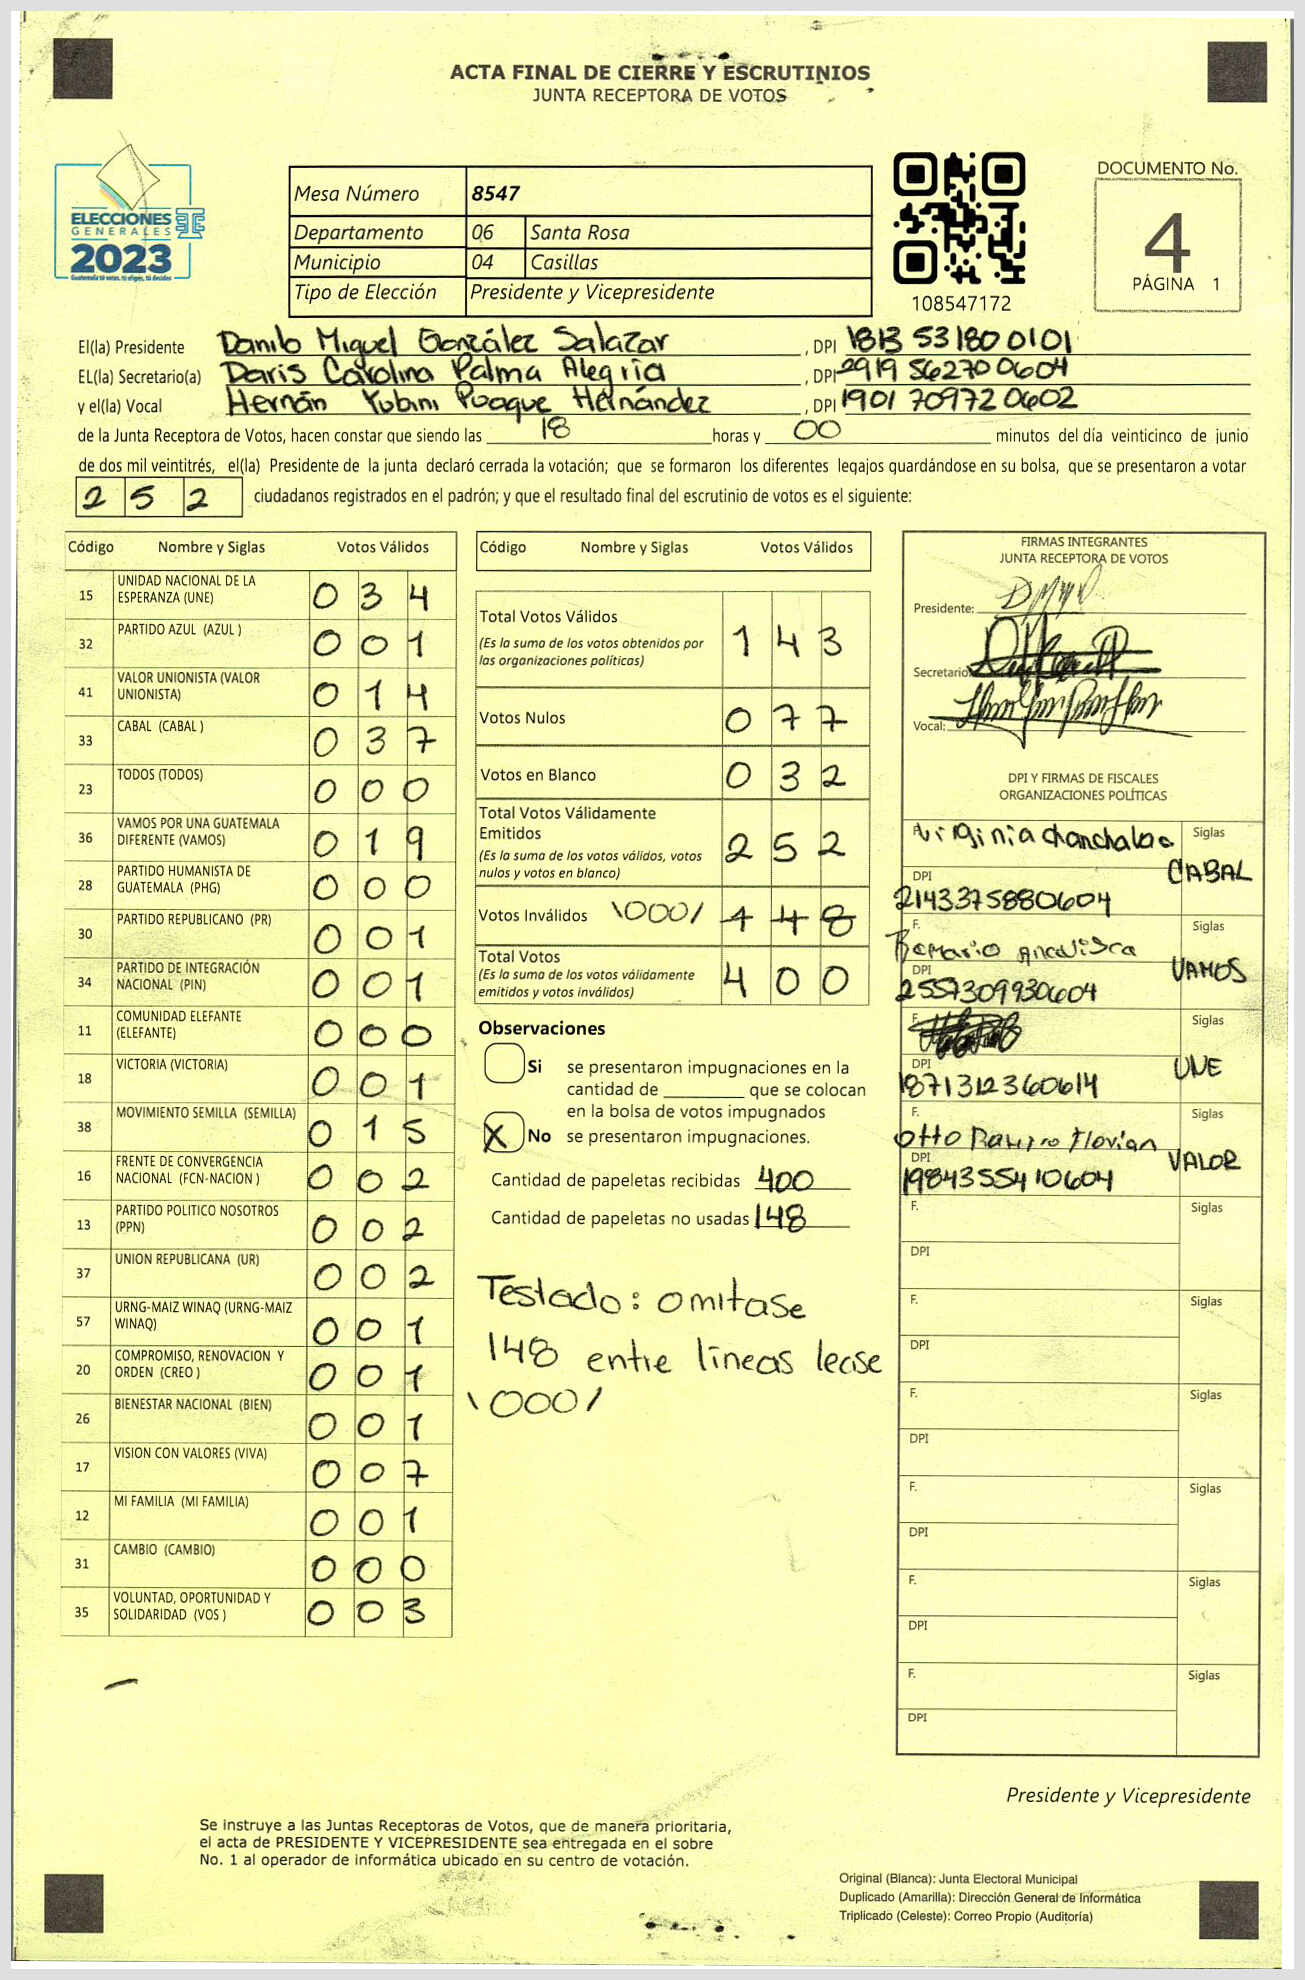 ACTA FINAL DE CIERRE Y ESCRUTINIOS
JUNTA RECEPTORA DE VOTOS
ELECCIONES
GENERALES
2023
Guatemala tú votas, tú eliges, tú decides
Mesa Número 8547
Departamento 06 Santa Rosa
Municipio 04 Casillas
Tipo de Elección Presidente y Vicepresidente
108547172
DOCUMENTO No.
4
PÁGINA 1
El(la) Presidente Danilo Miguel González Salazar , DPI 1813 53180 0101
EL(la) Secretario(a) Daris Carolina Palma Alegria , DPI 2919 56270 0604
y el(la) Vocal Hernán Yubini Puaque Hernández , DPI 1901 70972 0602
de la Junta Receptora de Votos, hacen constar que siendo las 18 horas y 00 minutos del día veinticinco de junio
de dos mil veintitrés, el(la) Presidente de la junta declaró cerrada la votación; que se formaron los diferentes legajos guardándose en su bolsa, que se presentaron a votar
252 ciudadanos registrados en el padrón; y que el resultado final del escrutinio de votos es el siguiente:
Código Nombre y Siglas Votos Válidos
15 UNIDAD NACIONAL DE LA ESPERANZA (UNE) 0 3 4
32 PARTIDO AZUL (AZUL ) 0 0 1
41 VALOR UNIONISTA (VALOR UNIONISTA) 0 1 4
33 CABAL (CABAL ) 0 3 7
23 TODOS (TODOS) 0 0 0
36 VAMOS POR UNA GUATEMALA DIFERENTE (VAMOS) 0 1 9
28 PARTIDO HUMANISTA DE GUATEMALA (PHG) 0 0 0
30 PARTIDO REPUBLICANO (PR) 0 0 1
34 PARTIDO DE INTEGRACIÓN NACIONAL (PIN) 0 0 1
11 COMUNIDAD ELEFANTE (ELEFANTE) 0 0 0
18 VICTORIA (VICTORIA) 0 0 1
38 MOVIMIENTO SEMILLA (SEMILLA) 0 1 5
16 FRENTE DE CONVERGENCIA NACIONAL (FCN-NACION ) 0 0 2
13 PARTIDO POLITICO NOSOTROS (PPN) 0 0 2
37 UNION REPUBLICANA (UR) 0 0 2
57 URNG-MAIZ WINAQ (URNG-MAIZ WINAQ) 0 0 1
20 COMPROMISO, RENOVACION Y ORDEN (CREO ) 0 0 1
26 BIENESTAR NACIONAL (BIEN) 0 0 1
17 VISION CON VALORES (VIVA) 0 0 7
12 MI FAMILIA (MI FAMILIA) 0 0 1
31 CAMBIO (CAMBIO) 0 0 0
35 VOLUNTAD, OPORTUNIDAD Y SOLIDARIDAD (VOS ) 0 0 3
Código Nombre y Siglas Votos Válidos
Total Votos Válidos 1 4 3
(Es la suma de los votos obtenidos por
las organizaciones políticas)
Votos Nulos 0 7 7
Votos en Blanco 0 3 2
Total Votos Válidamente
Emitidos 2 5 2
(Es la suma de los votos válidos, votos
nulos y votos en blanco)
Votos Inválidos \000/ 1 4 8
Total Votos 4 0 0
(Es la suma de los votos válidamente
emitidos y votos inválidos)
Observaciones
Si se presentaron impugnaciones en la
cantidad de ________ que se colocan
en la bolsa de votos impugnados
X No se presentaron impugnaciones.
Cantidad de papeletas recibidas 400
Cantidad de papeletas no usadas 148
Testado: omitase
148 entre lineas lease
\000/
FIRMAS INTEGRANTES
JUNTA RECEPTORA DE VOTOS
Presidente:
Secretario
Vocal:
DPI Y FIRMAS DE FISCALES
ORGANIZACIONES POLÍTICAS
Virginia Siglas
DPI CABAL
2143375880604
F. Siglas
DPI VAMOS
2557309930604
F. Siglas
DPI UNE
1871312360614
F. Otto Ramiro Florian Siglas
DPI VALOR
1984355410604
F. Siglas
DPI
F. Siglas
DPI
F. Siglas
DPI
F. Siglas
DPI
F. Siglas
DPI
F. Siglas
DPI
Presidente y Vicepresidente
Se instruye a las Juntas Receptoras de Votos, que de manera prioritaria,
el acta de PRESIDENTE Y VICEPRESIDENTE sea entregada en el sobre
No. 1 al operador de informática ubicado en su centro de votación.
Original (Blanca): Junta Electoral Municipal
Duplicado (Amarilla): Dirección General de Informática
Triplicado (Celeste): Correo Propio (Auditoría)